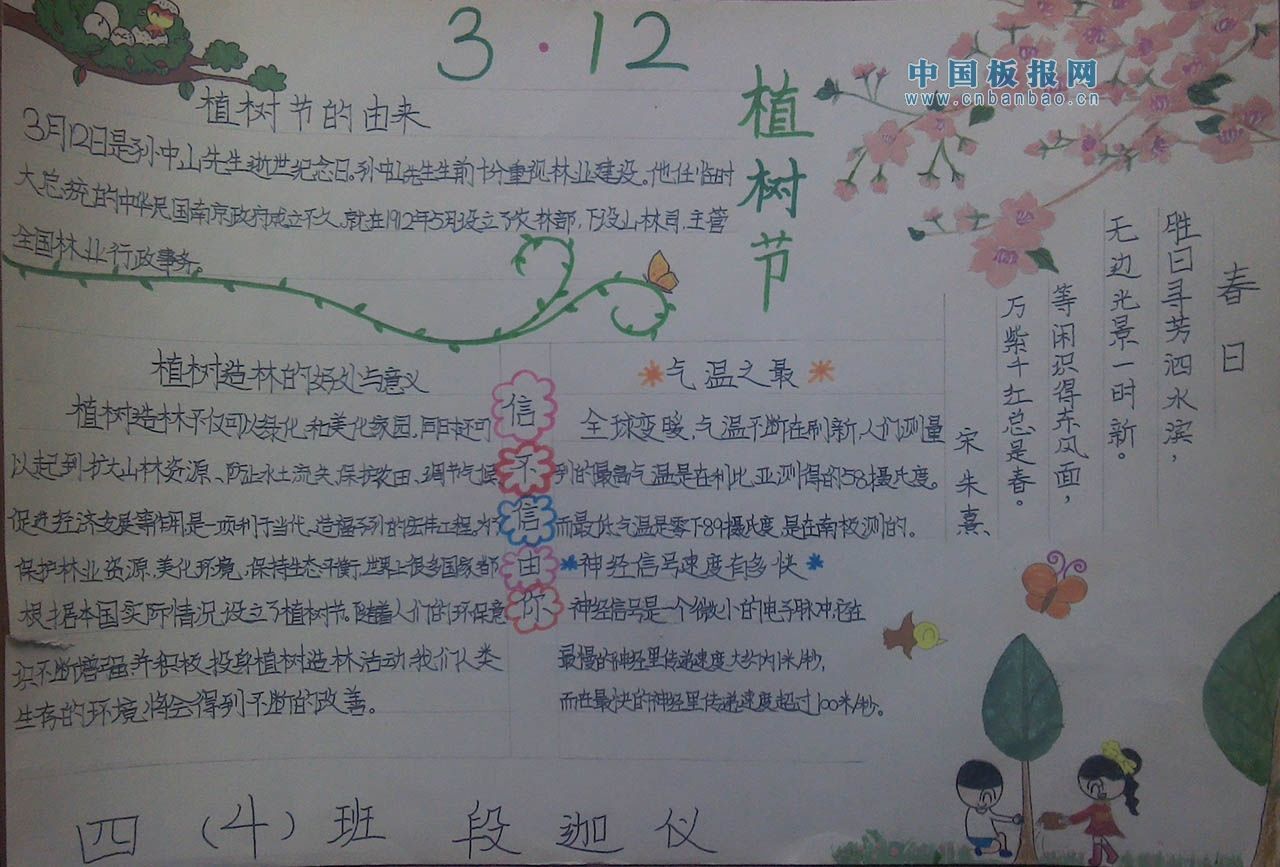 3·12
植树节
中国板报网
www.cnbanbao.cn
植树节的由来
3月12日是孙中山先生逝世纪念日。孙中山先生生前十分重视林业建设。他任临时
大总统的中华民国南京政府成立不久,就在1912年5月设立了农林部,下设山林司,主管
全国林业行政事务。
春日
胜日寻芳泗水滨,
无边光景一时新。
等闲识得东风面,
万紫千红总是春。
宋朱熹
植树造林的好处与意义
植树造林不仅可以绿化和美化家园,同时还可
以起到扩大山林资源、防止水土流失、保护农田、调节气候、
促进经济发展等作用,是一项利于当代、造福子孙的宏伟工程。为了
保护林业资源,美化环境,保持生态平衡,世界上很多国家都
根据本国实际情况设立了植树节。随着人们的环保意
识不断增强,并积极投身植树造林活动,我们人类
生存的环境将会得到不断的改善。
信不信由你
气温之最
全球变暖,气温不断在刷新,人们测量
到的最高气温是在利比亚测得的58摄氏度。
而最低气温是零下89摄氏度,是在南极测的。
神经信号速度有多快
神经信号是一个微小的电子脉冲,它在
最慢的神经里传递速度大约为1米/秒,
而在最快的神经里传递速度超过100米/秒。
四(4)班 段迦仪